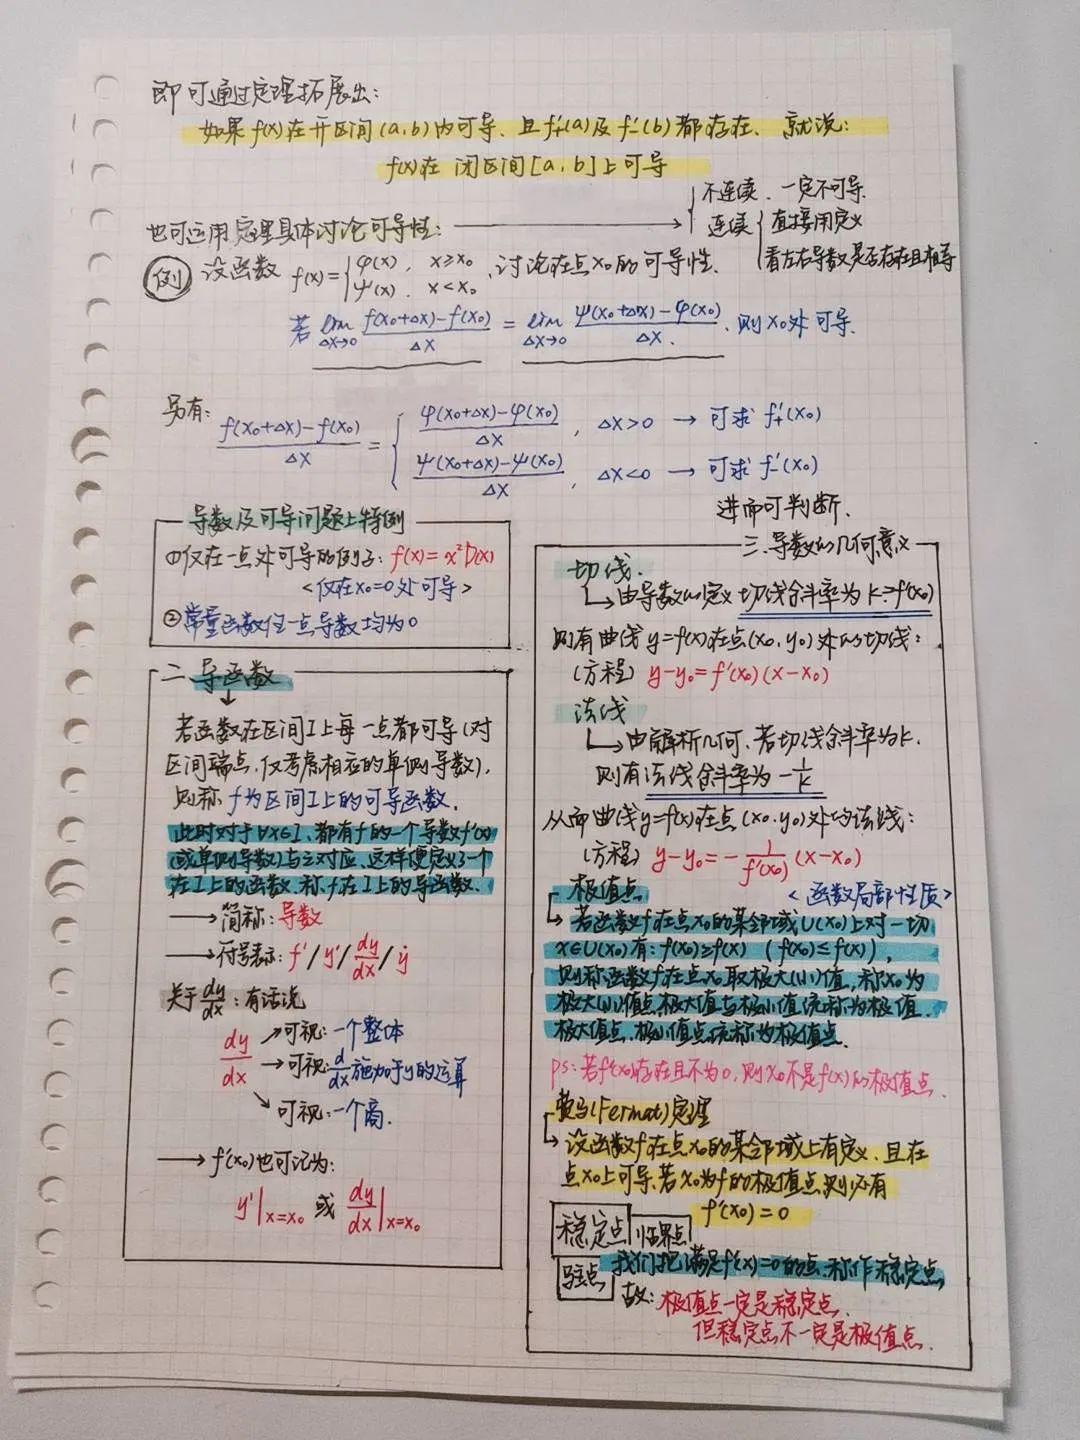 即可通过定理拓展出：
如果f(x)在开区间(a,b)内可导、且f'₊(a)及f'₋(b)都存在、就说：
f(x)在闭区间[a,b]上可导
不连续、一定不可导.
也可运用定理具体讨论可导性：→
连续 { 直接用定义
看左右导数是否存在且相等
例 设函数 f(x)={φ(x), x≥x₀ ψ(x), x<x₀ ,讨论在点x₀的可导性.
若 lim Δx→0 (f(x₀+Δx)-f(x₀))/Δx = lim Δx→0 (ψ(x₀+Δx)-φ(x₀))/Δx ,则x₀处可导.
另有: (f(x₀+Δx)-f(x₀))/Δx = {
(φ(x₀+Δx)-φ(x₀))/Δx , Δx>0 → 可求 f'₊(x₀)
(ψ(x₀+Δx)-ψ(x₀))/Δx , Δx<0 → 可求 f'₋(x₀)
进而可判断.
导数及可导问题上特例
①仅在一点处可导的例子: f(x)=x²D(x)
<仅在x₀=0处可导>
②常量函数任一点导数均为0
二、导函数
↓
若函数在区间I上每一点都可导(对
区间端点,仅考虑相应的单侧导数),
则称f为区间I上的可导函数.
此时对于∀x∈I,都有f的一个导数f'(x)
(或单侧导数)与之对应,这样便定义了一个
在I上的函数.称f在I上的导函数.
→简称: 导数
→符号表示: f'/y'/dy/dx/ẏ
关于dy/dx: 有话说
dy/dx →可视: 一个整体
→可视: d/dx施加于y的运算
→可视: 一个商.
→f'(x₀)也可记为:
y'|x=x₀ 或 dy/dx|x=x₀
三.导数的几何意义
切线.
→由导数的定义 切线斜率为k=f'(x₀)
则有曲线y=f(x)在点(x₀,y₀)处的切线:
(方程) y-y₀=f'(x₀)(x-x₀)
法线
→由解析几何,若切线斜率为k.
则有法线斜率为-1/k
从而曲线y=f(x)在点(x₀,y₀)处的法线:
(方程) y-y₀=-1/f'(x₀)(x-x₀)
极值点 <函数局部性质>
→若函数f在点x₀的某邻域U(x₀)上对一切
x∈U(x₀)有: f(x₀)≥f(x) (f(x₀)≤f(x)),
则称函数f在点x₀取极大(小)值,称x₀为
极大(小)值点.极大值与极小值统称为极值.
极大值点、极小值点统称为极值点.
ps:若f'(x₀)存在且不为0,则x₀不是f(x)的极值点.
费马(Fermat)定理
→设函数f在点x₀的某邻域上有定义、且在
点x₀上可导.若x₀为f的极值点,则必有
f'(x₀)=0
稳定点 临界点
驻点 我们把满足f'(x)=0的点,称作稳定点,
故: 极值点一定是稳定点.
但稳定点不一定是极值点.